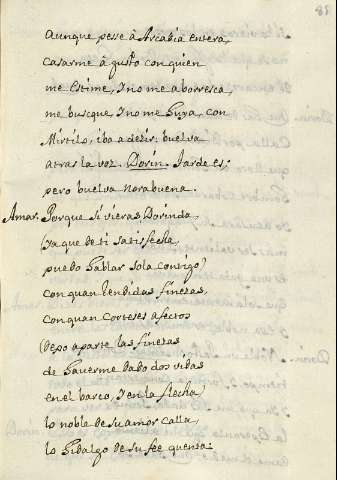 89
aunque pesse â Arcabia entera,
casarme â gusto con quien
me estime, I no me aborresca,
me busque, I no me huya, con
Mirtilo, iba a dezir: buelva
atras la voz. Dorin. Tarde es;
pero buelva norabuena.
Amar. Porque si vieras, Dorinda,
(ya que de ti satisfecha
puedo hablar sola contigo)
con quan rendidas finezas,
con quan corteses afectos
(dexo aparte las finezas
de haverme dado dos vidas
en el barco, I en la flecha)
lo noble de su amor calla,
lo hidalgo de su fee quenta.